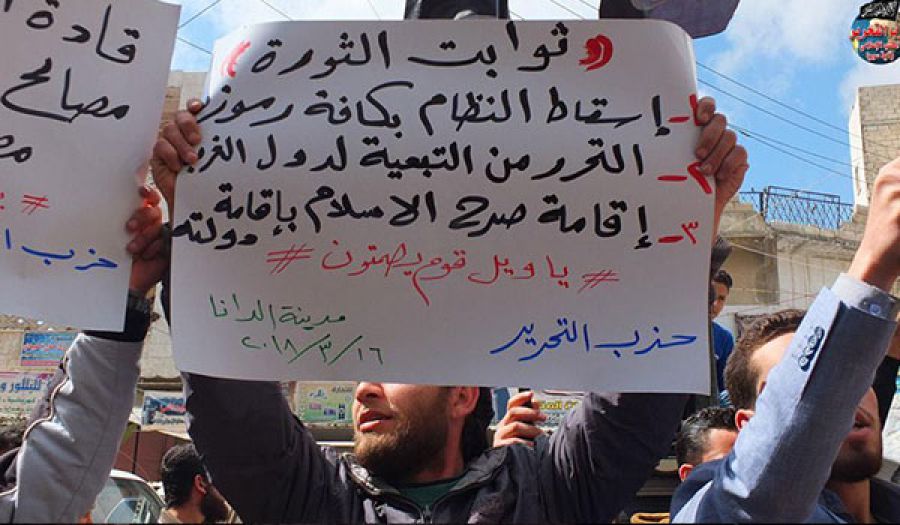 ثوابت الثورة
١- إسقاط النظام بكافة رموزه
٢- التحرر من التبعية لدول الغرب
٣- إقامة صرح الاسلام بإقامة دولته
# ياويل قوم يصمتون #
حزب التحرير
مدينة الدانا
٢٠١٨/٣/١٦
قادة
مصالح
#
حزب ا